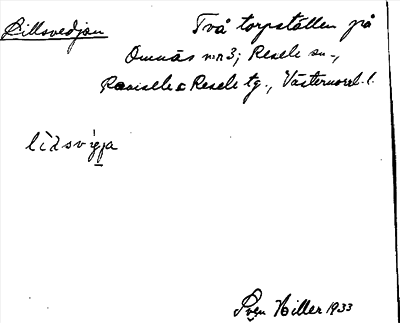 Lillsvedjan Två torpställen på
Omnäs nr 3; Resele sn.,
Ramsele o Resele tg., Västernorrl. l.
lìdsvigja
Sven Hiller 1933